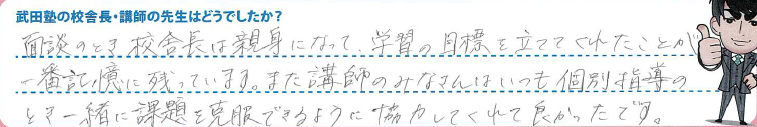 武田塾の校舎長・講師の先生はどうでしたか?
面談のとき校舎長は親身になって、学習の目標を立ててくれたことが
一番記憶に残っています。また講師のみなさんはいつも個別指導の
とき一緒に課題を克服できるように協力してくれて良かったです。